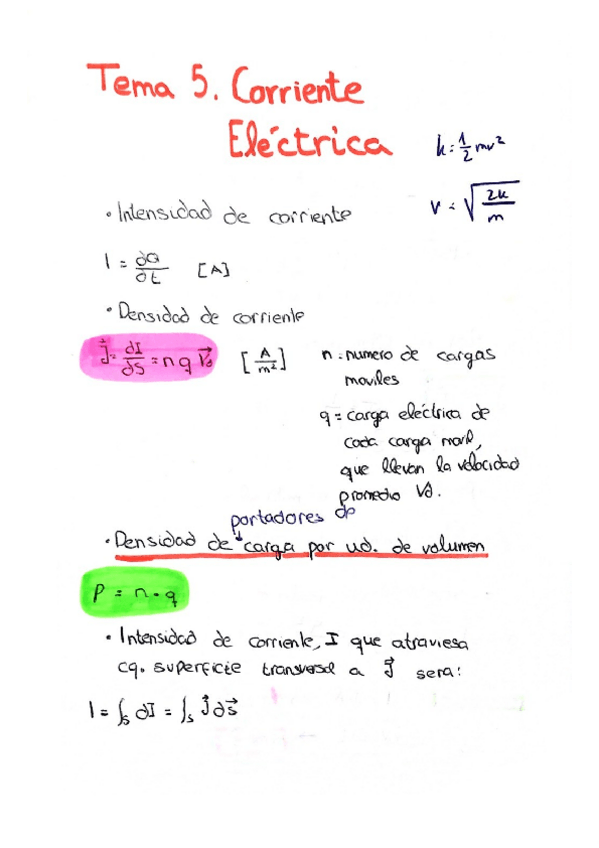 Tema 5. Corriente
Eléctrica
k = 1/2 mv²
v = √(2k/m)
• Intensidad de corriente
I = dQ/dt [A]
• Densidad de corriente
J⃗ = dI/dS = n q V⃗d [A/m²]
n = numero de cargas
moviles
q = carga eléctrica de
cada carga movil,
que llevan la velocidad
promedio Vd.
portadores de
• Densidad de carga por ud. de volumen
ρ = n · q
• Intensidad de corriente, I que atraviesa
cq. superficie transversal a J⃗ sera:
I = ∫s dI = ∫s J⃗ ds⃗